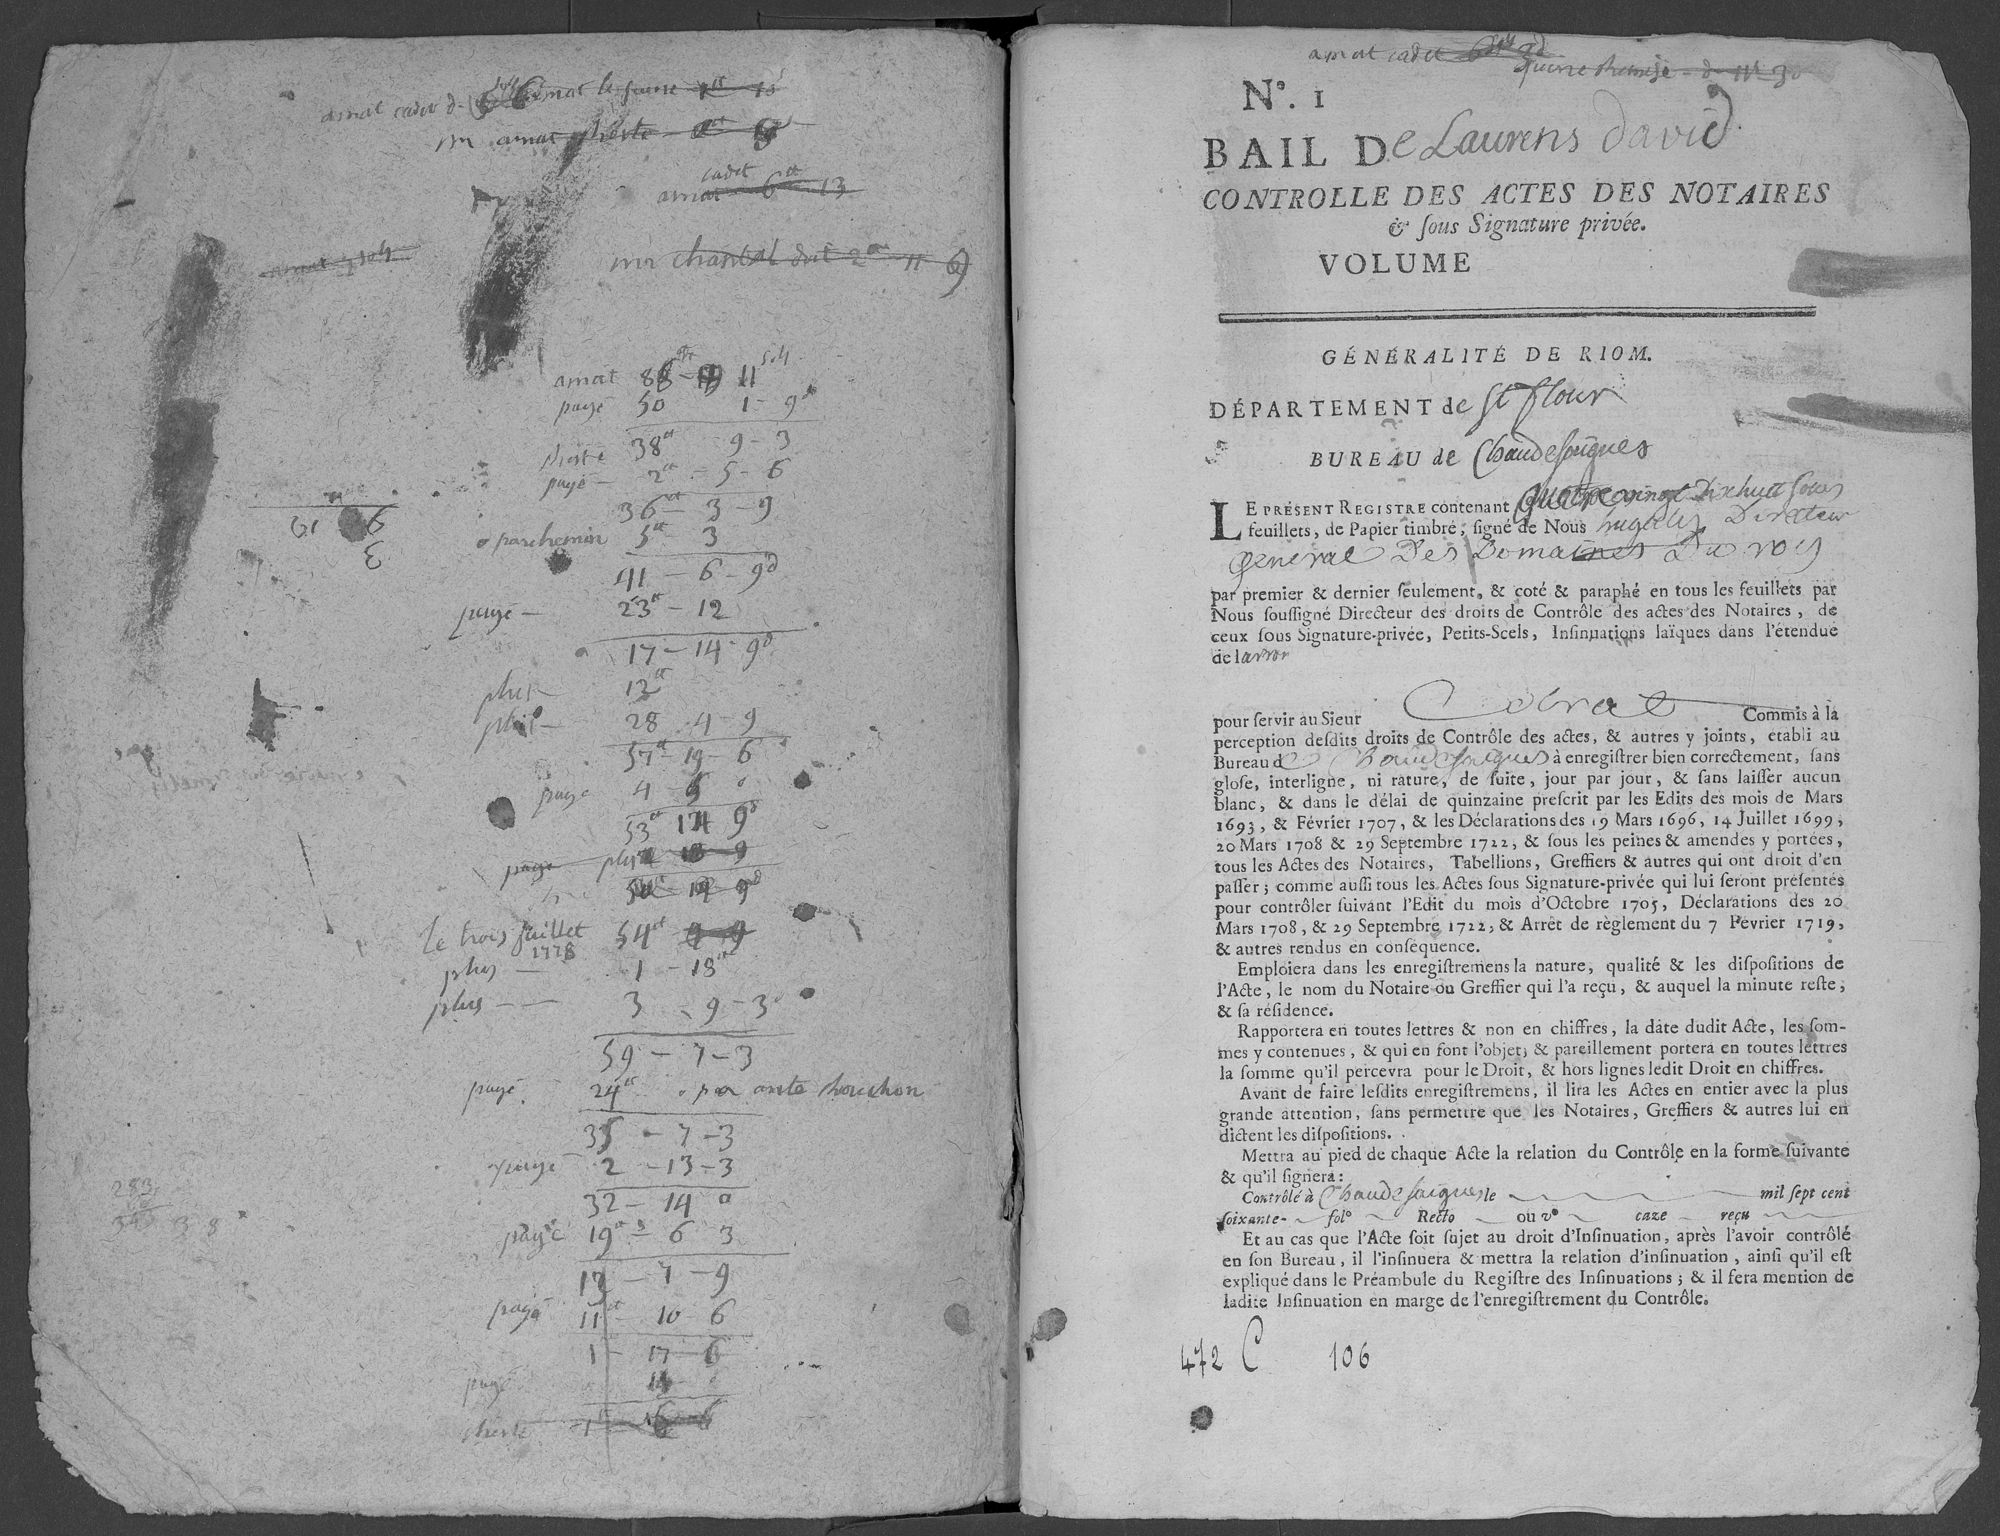 amat cadet d.
mr amat
cadet
amat 6tt 13
mr chantal doit 2tt 11 6
amat
amat 88 11
payé 50 1 - 9d
38tt 9 - 3
payé - 2tt - 5 - 6
36tt - 3 - 9
parchemin 5tt - 3
41 - 6 - 9d
payé - 23tt - 12
17 - 14 - 9d
plus 12tt
plus - 28 4 - 9
57tt 19 - 6
payé 4 6 0
53tt 14 9d
le trois juillet 54tt
1778
plus - 1 - 18
plus - - 3 9 - 3d
59 - 7 - 3
payé 24tt
35 - 7 - 3
payé 2 - 13 - 3
32 - 14 0
payé 19tt 6 3
13 - 7 - 9
payé 11tt - 10 6
1 - 17 6
payé 14
283
amat cadet
N°. 1
BAIL De Laurens david
CONTROLLE DES ACTES DES NOTAIRES
& sous Signature privée.
VOLUME
GÉNÉRALITÉ DE RIOM.
DÉPARTEMENT de St flour
BUREAU de Chaudesaigues
LE PRÉSENT REGISTRE contenant quatre vingt Dixhuit
feuillets, de Papier timbré, signé de Nous Directeur
general Des Domaines Du roy
par premier & dernier seulement, & coté & paraphé en tous les feuillets par
Nous soussigné Directeur des droits de Contrôle des actes des Notaires, de
ceux sous Signature-privée, Petits-Scels, Insinuations laïques dans l'étendue
de la
pour servir au Sieur Commis à la
perception desdits droits de Contrôle des actes, & autres y joints, établi au
Bureau de Chaudesaigues à enregistrer bien correctement, sans
glose, interligne, ni rature, de suite, jour par jour, & sans laisser aucun
blanc, & dans le délai de quinzaine prescrit par les Edits des mois de Mars
1693, & Février 1707, & les Déclarations des 19 Mars 1696, 14 Juillet 1699,
20 Mars 1708 & 29 Septembre 1722, & sous les peines & amendes y portées,
tous les Actes des Notaires, Tabellions, Greffiers & autres qui ont droit d'en
passer; comme aussi tous les Actes sous Signature-privée qui lui seront présentés
pour contrôler suivant l'Edit du mois d'Octobre 1705, Déclarations des 20
Mars 1708, & 29 Septembre 1722, & Arrêt de règlement du 7 Février 1719,
& autres rendus en conséquence.
Emploiera dans les enregistremens la nature, qualité & les dispositions de
l'Acte, le nom du Notaire ou Greffier qui l'a reçu, & auquel la minute reste,
& sa résidence.
Rapportera en toutes lettres & non en chiffres, la date dudit Acte, les som-
mes y contenues, & qui en font l'objet; & pareillement portera en toutes lettres
la somme qu'il percevra pour le Droit, & hors lignes ledit Droit en chiffres.
Avant de faire lesdits enregistremens, il lira les Actes en entier avec la plus
grande attention, sans permettre que les Notaires, Greffiers & autres lui en
dictent les dispositions.
Mettra au pied de chaque Acte la relation du Contrôle en la forme suivante
& qu'il signera:
Contrôlé à Chaudesaigues le mil sept cent
soixante- fol° Recto ou v° caze reçu
Et au cas que l'Acte soit sujet au droit d'Insinuation, après l'avoir contrôlé
en son Bureau, il l'insinuera & mettra la relation d'insinuation, ainsi qu'il est
expliqué dans le Préambule du Registre des Insinuations; & il fera mention de
ladite Insinuation en marge de l'enregistrement du Contrôle.
472 C 106